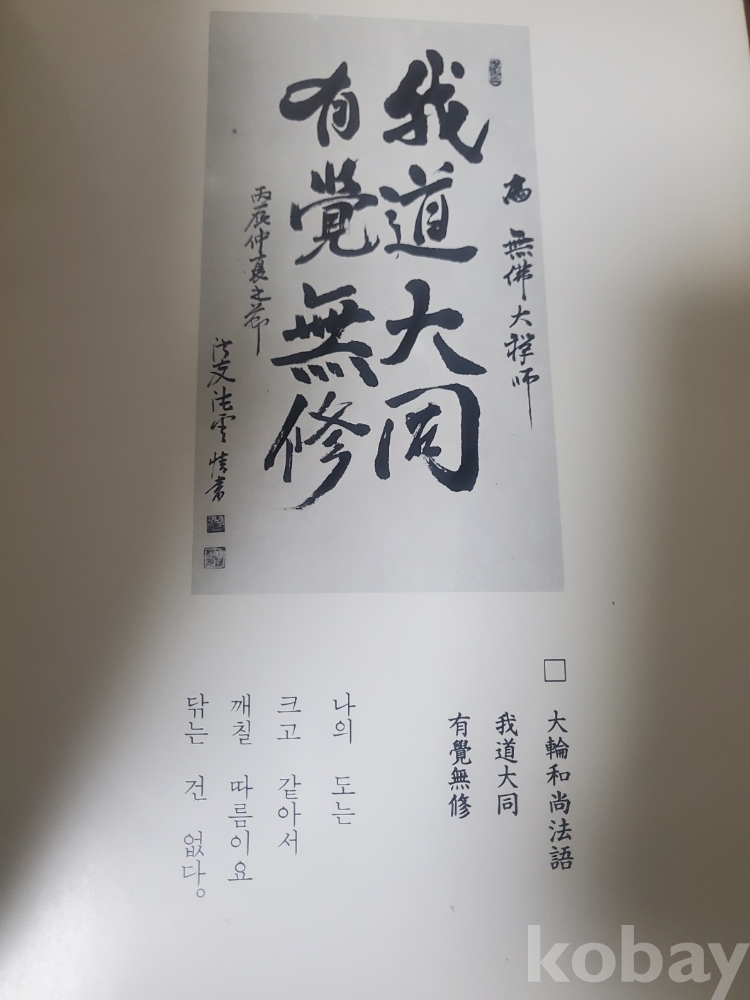 爲 無佛大禪師
我道大同
有覺無修
丙辰仲夏之節
法友法雲情書
□ 大輪和尚法語
我道大同
有覺無修
나의 도는
크고 같아서
깨칠 따름이요
닦는 건 없다。
kobay